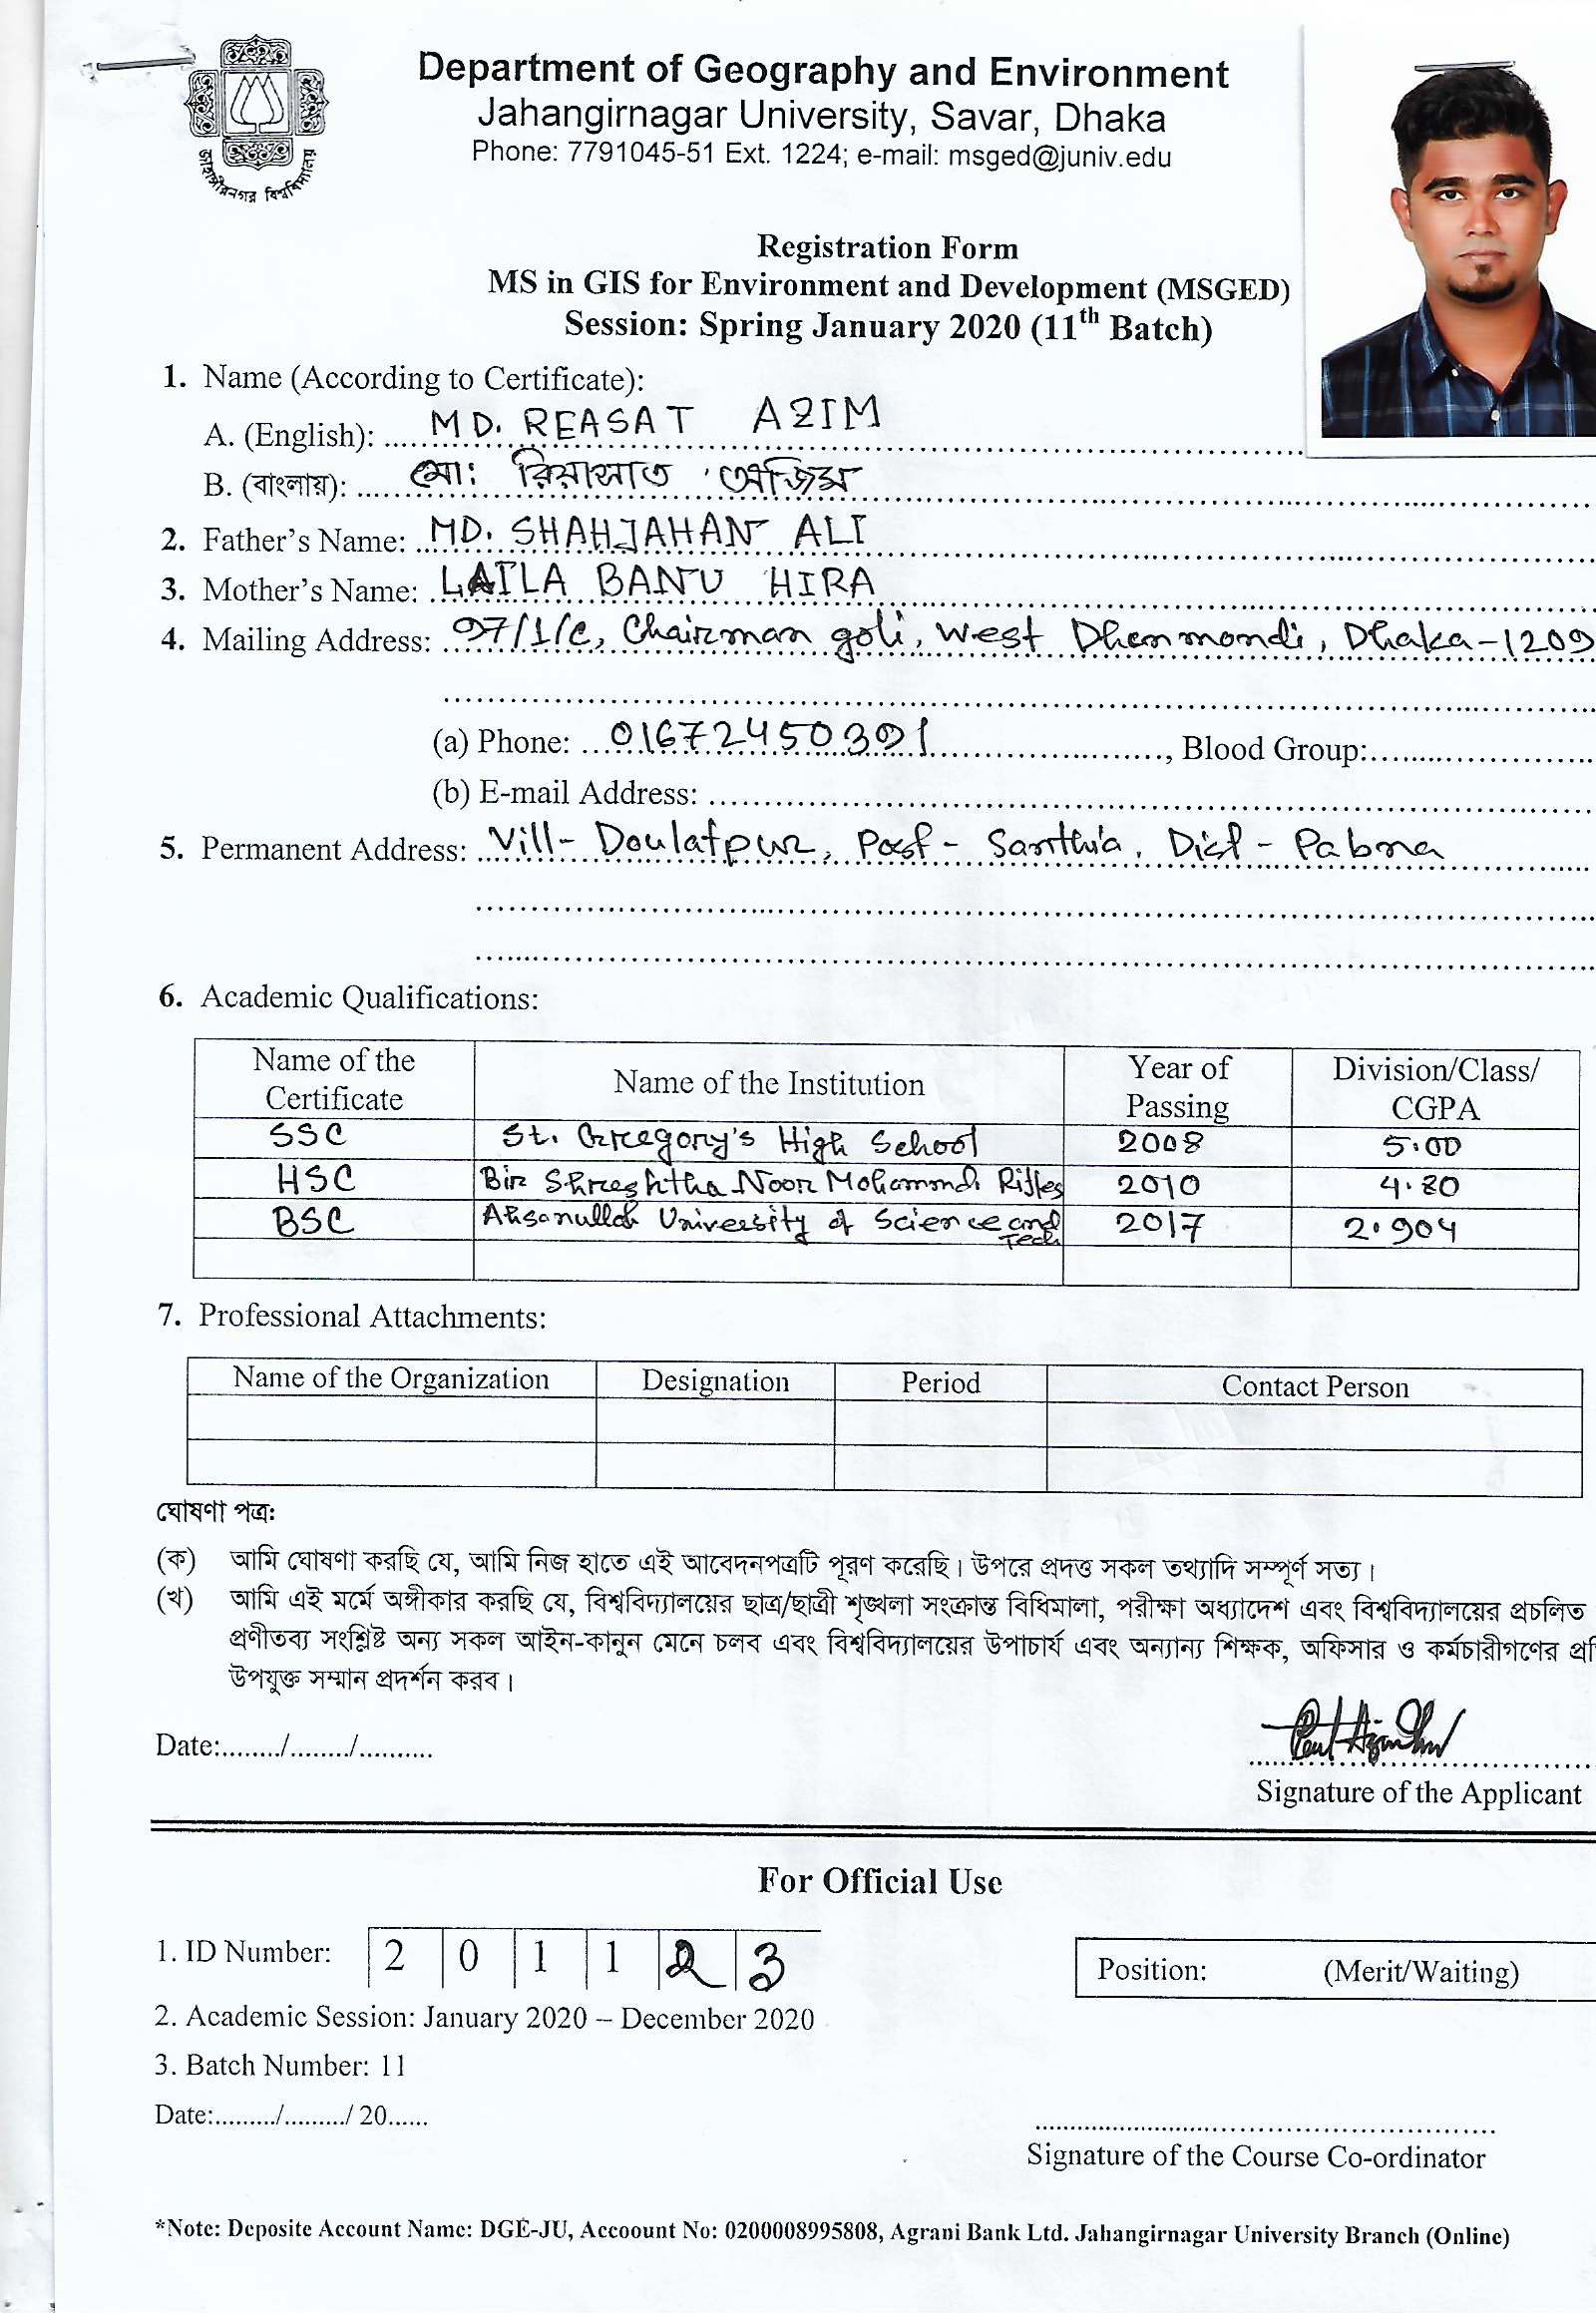 জাহাঙ্গীরনগর বিশ্ববিদ্যালয়
Department of Geography and Environment
Jahangirnagar University, Savar, Dhaka
Phone: 7791045-51 Ext. 1224; e-mail: msged@juniv.edu
Registration Form
MS in GIS for Environment and Development (MSGED)
Session: Spring January 2020 (11th Batch)
1. Name (According to Certificate):
A. (English): MD. REASAT AZIM
B. (বাংলায়): মো: রিয়াসাত আজিম
2. Father's Name: MD. SHAHJAHAN ALI
3. Mother's Name: LAILA BANU HIRA
4. Mailing Address: 97/1/C, Chairman goli, West Dhanmondi, Dhaka-1209
(a) Phone: 01672450391, Blood Group:
(b) E-mail Address:
5. Permanent Address: Vill- Doulatpur, Post- Santhia, Dist- Pabna
6. Academic Qualifications:
Name of the Certificate Name of the Institution Year of Passing Division/Class/CGPA
SSC St. Gregory's High School 2008 5.00
HSC Bir Shreshtha Noor Mohammad Rifles 2010 4.80
BSC Ahsanullah University of Science and Tech. 2017 2.904
7. Professional Attachments:
Name of the Organization Designation Period Contact Person
ঘোষণা পত্র:
(ক) আমি ঘোষণা করছি যে, আমি নিজ হাতে এই আবেদনপত্রটি পূরণ করেছি। উপরে প্রদত্ত সকল তথ্যাদি সম্পূর্ণ সত্য।
(খ) আমি এই মর্মে অঙ্গীকার করছি যে, বিশ্ববিদ্যালয়ের ছাত্র/ছাত্রী শৃঙ্খলা সংক্রান্ত বিধিমালা, পরীক্ষা অধ্যাদেশ এবং বিশ্ববিদ্যালয়ের প্রচলিত
প্রণীতব্য সংশ্লিষ্ট অন্য সকল আইন-কানুন মেনে চলব এবং বিশ্ববিদ্যালয়ের উপাচার্য এবং অন্যান্য শিক্ষক, অফিসার ও কর্মচারীগণের
উপযুক্ত সম্মান প্রদর্শন করব।
Date:......../......../..........
Signature of the Applicant
For Official Use
1. ID Number: 2 0 1 1 2 3
Position: (Merit/Waiting)
2. Academic Session: January 2020 – December 2020
3. Batch Number: 11
Date:........./........./ 20......
Signature of the Course Co-ordinator
*Note: Deposite Account Name: DGE-JU, Accoount No: 0200008995808, Agrani Bank Ltd. Jahangirnagar University Branch (Online)